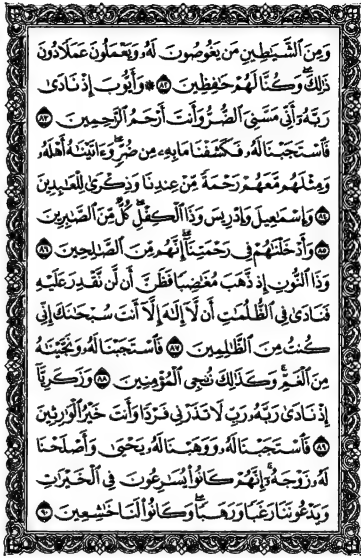 وَمِنَ ٱلشَّيَٰطِينِ مَن يَغُوصُونَ لَهُۥ وَيَعْمَلُونَ عَمَلًا دُونَ
ذَٰلِكَ ۖ وَكُنَّا لَهُمْ حَٰفِظِينَ ٨٢ ۞ وَأَيُّوبَ إِذْ نَادَىٰ
رَبَّهُۥٓ أَنِّى مَسَّنِىَ ٱلضُّرُّ وَأَنتَ أَرْحَمُ ٱلرَّٰحِمِينَ ٨٣
فَٱسْتَجَبْنَا لَهُۥ فَكَشَفْنَا مَا بِهِۦ مِن ضُرٍّ ۖ وَءَاتَيْنَٰهُ أَهْلَهُۥ
وَمِثْلَهُم مَّعَهُمْ رَحْمَةً مِّنْ عِندِنَا وَذِكْرَىٰ لِلْعَٰبِدِينَ
٨٤ وَإِسْمَٰعِيلَ وَإِدْرِيسَ وَذَا ٱلْكِفْلِ ۖ كُلٌّ مِّنَ ٱلصَّٰبِرِينَ
٨٥ وَأَدْخَلْنَٰهُمْ فِى رَحْمَتِنَآ ۖ إِنَّهُم مِّنَ ٱلصَّٰلِحِينَ ٨٦
وَذَا ٱلنُّونِ إِذ ذَّهَبَ مُغَٰضِبًا فَظَنَّ أَن لَّن نَّقْدِرَ عَلَيْهِ
فَنَادَىٰ فِى ٱلظُّلُمَٰتِ أَن لَّآ إِلَٰهَ إِلَّآ أَنتَ سُبْحَٰنَكَ إِنِّى
كُنتُ مِنَ ٱلظَّٰلِمِينَ ٨٧ فَٱسْتَجَبْنَا لَهُۥ وَنَجَّيْنَٰهُ
مِنَ ٱلْغَمِّ ۚ وَكَذَٰلِكَ نُۨجِى ٱلْمُؤْمِنِينَ ٨٨ وَزَكَرِيَّآ
إِذْ نَادَىٰ رَبَّهُۥ رَبِّ لَا تَذَرْنِى فَرْدًا وَأَنتَ خَيْرُ ٱلْوَٰرِثِينَ
٨٩ فَٱسْتَجَبْنَا لَهُۥ وَوَهَبْنَا لَهُۥ يَحْيَىٰ وَأَصْلَحْنَا
لَهُۥ زَوْجَهُۥٓ ۚ إِنَّهُمْ كَانُوا۟ يُسَٰرِعُونَ فِى ٱلْخَيْرَٰتِ
وَيَدْعُونَنَا رَغَبًا وَرَهَبًا ۖ وَكَانُوا۟ لَنَا خَٰشِعِينَ ٩٠